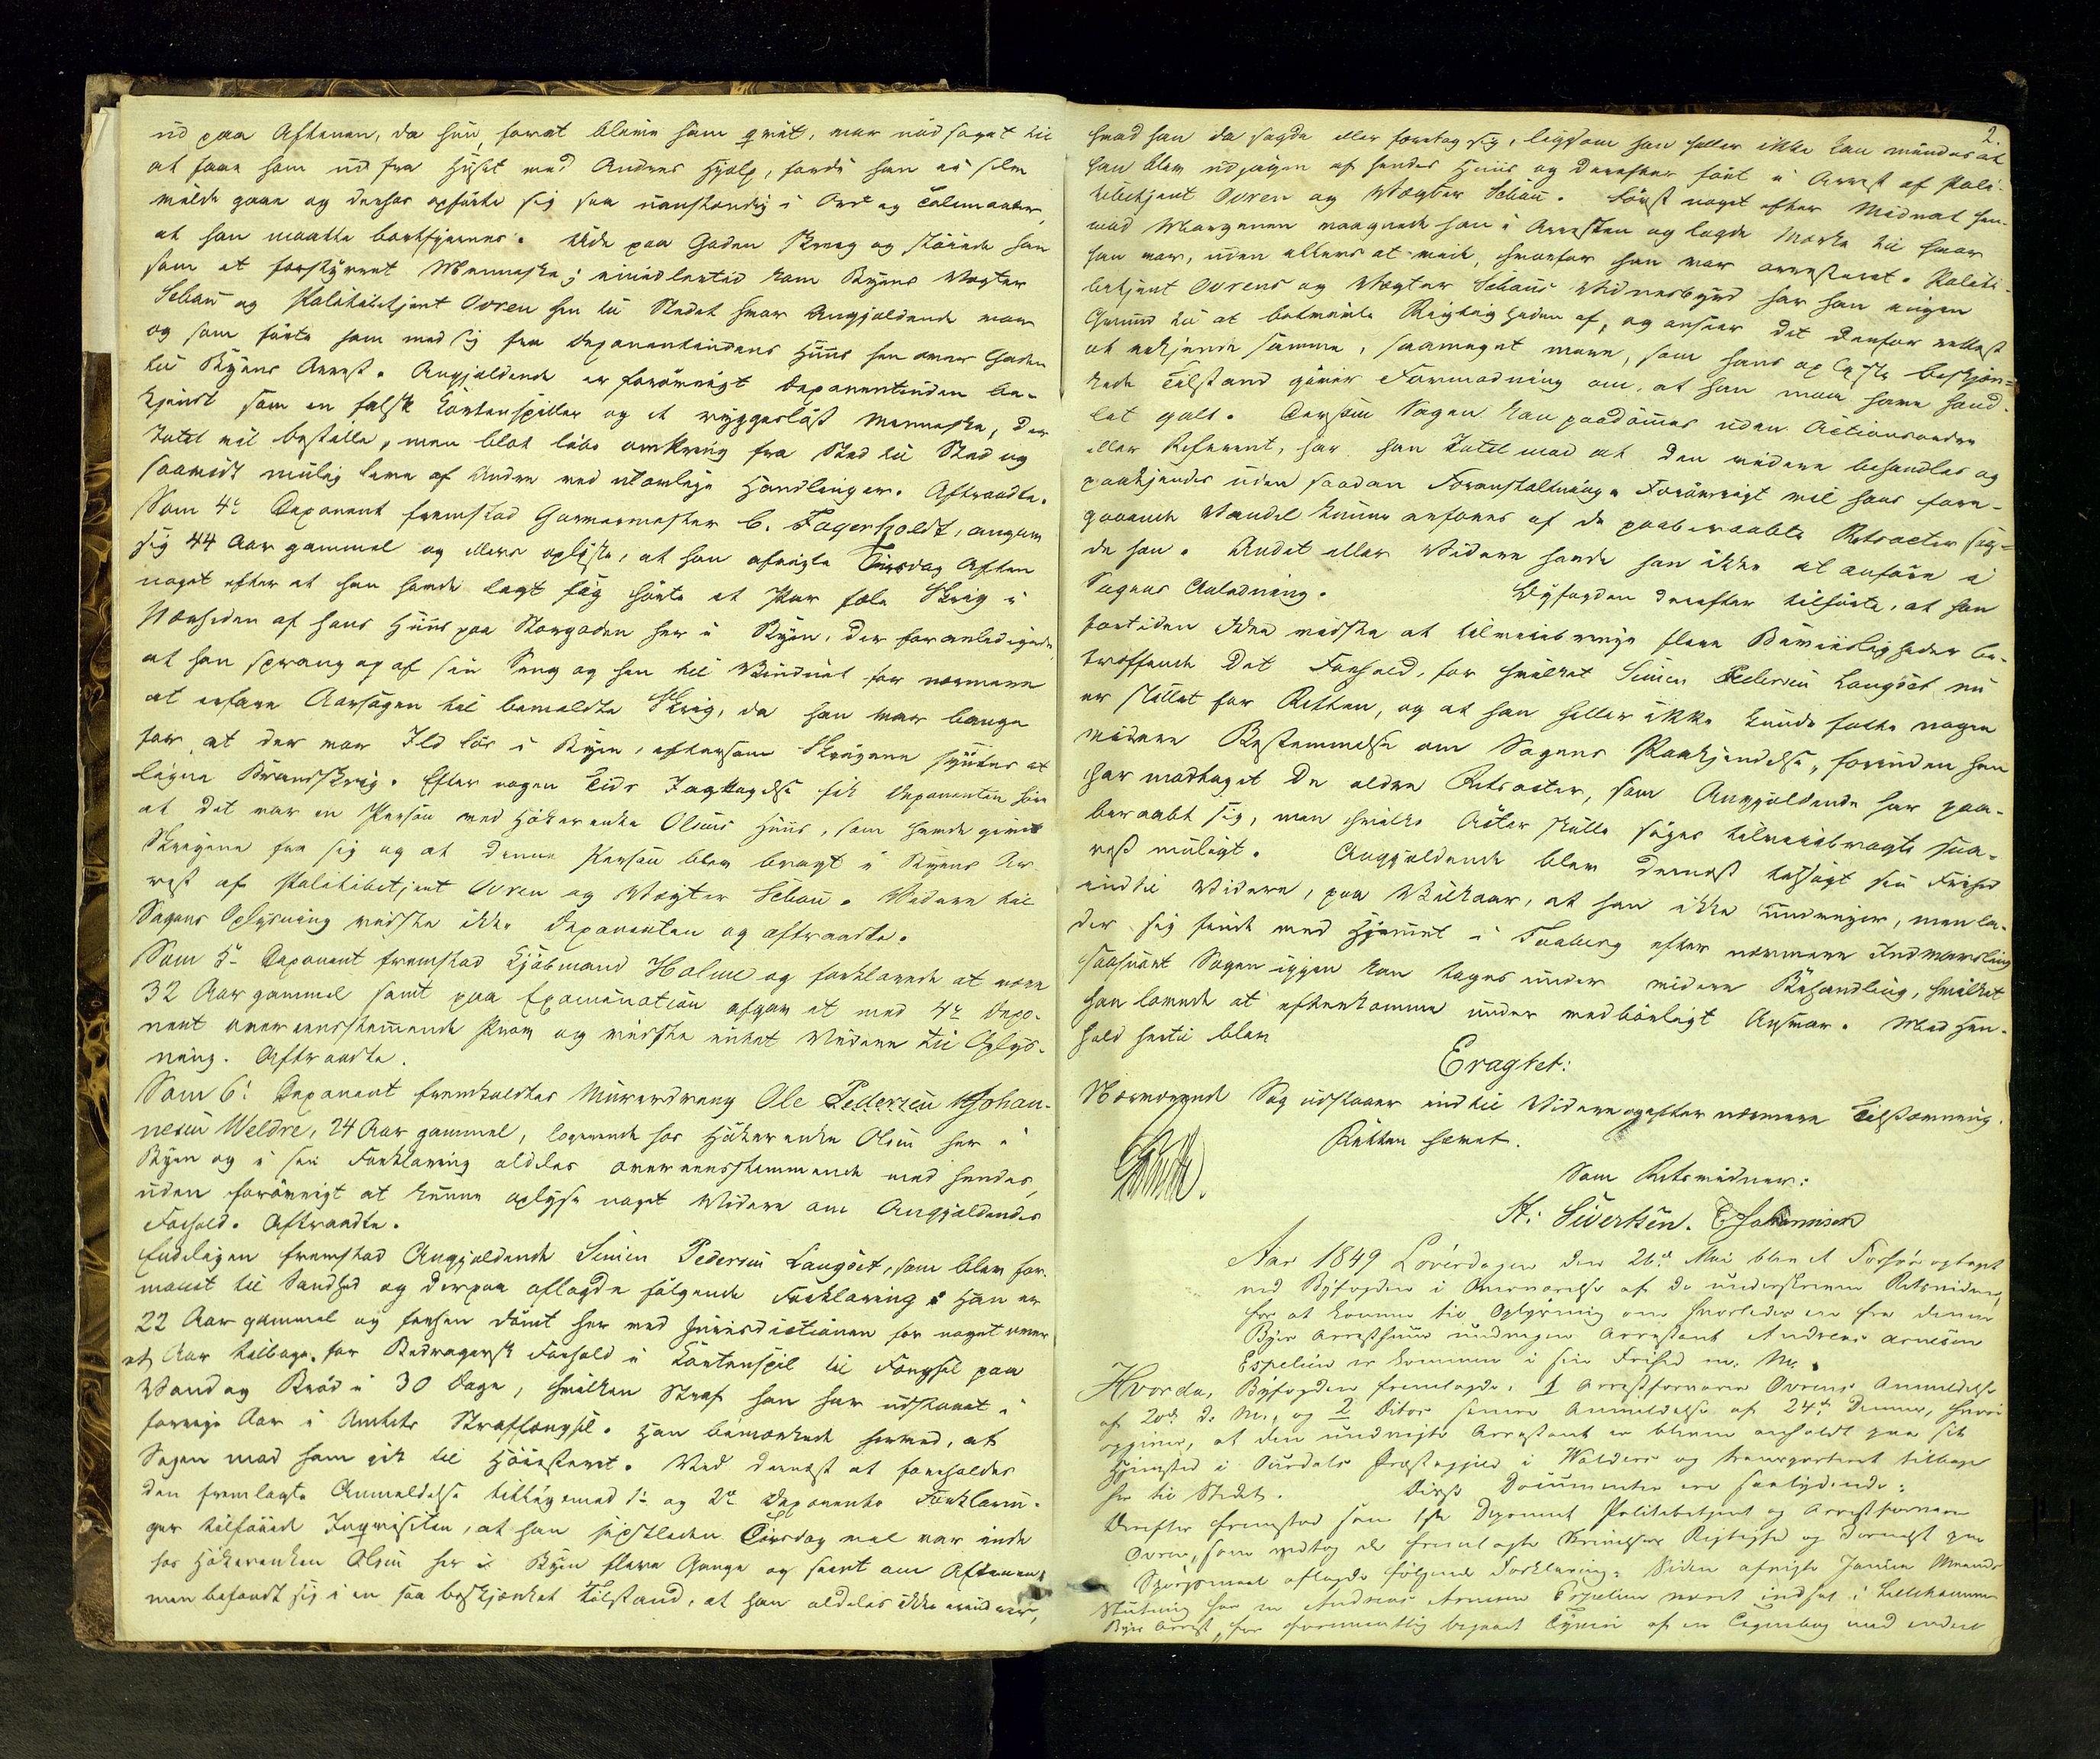 ud paa Aftenen, da hun, forat blive ham qvit, var nødsaget til
at faae ham ud fra Huset med Andres Hjelp, fordi han ei selv
vilde gaae og desfor opførte sig saa uanstændig i Ord og Talemaader,
at han maatte bortfjernes. Ude paa Gaden skreg og støiede han
som et forstyrret Menneske; imidlertid kom Byens Vægter
Schou og Politibetjent Owren hen til Stedet hvor Angjældende var
og som førte ham med sig fra Deponentindens Huus hen over Gaden
til Byens Arrest. Angjældende er forøvrigt Deponentinden be-
kjendt som en falsk Kortenspiller og et ryggesløst Menneske, der
Intet vil bestille, men blot løbe omkring fra Sted til Sted og
saavidt mulig leve af Andre ved ulovlige Handlinger. Aftraadte.
Som 4de Deponent fremstod Garvermester C. Fagerholdt, angav
sig 44 Aar gammel og ellers oplyste, at han afvigte Tirsdag Aften
noget efter at han havde lagt sig hørte et Par fæle Skrig i
Nærheden af hans Huus paa Storgaden her i Byen, der foranledigede,
at han sprang op af sin Seng og hen til Vinduet for nærmere
at erfare Aarsagen til bemeldte Skrig, da han var bange
for at der var Ild løs i Byen, eftersom Skrigene syntes at
ligne Brandskrig. Efter nogen Tids Iagttagelse fik Deponenten høre
at det var en Person ved Høkerenke Olsens Huus, som havde givet
Skrigene fra sig og at denne Person blev bragt i Byens Ar-
rest af Politibetjent Owren og Vægter Schou. Videre til
Sagens Oplysning vidste ikke Deponenten og aftraadte.
Som 5te Deponent fremstod Kjøbmand Holme og forklarede at være
32 Aar gammel samt paa Examination afgav et med 4de Depo-
nent overeensstemmende Prov og vidste intet Videre til Oplys-
ning. Aftraadte.
Som 6te Deponent fremkaldtes Murerdreng Ole Pedersen Johan-
nesen Weldre, 24 Aar gammel, logerende hos Høkerenke Olsen her i
Byen og i sin Forklaring aldeles overeensstemmende med hendes,
uden forøvrigt at kunne oplyse noget Videre om Angjældendes
Forhold. Aftraadte.
Endeligen fremstod Angjældende Simen Pedersen Laugset, som blev for-
manet til Sandhed og derpaa aflagde følgende Forklaring: Han er
22 Aar gammel og forhen dømt her ved Jurisdictionen for noget over
et Aar tilbage for Bedragersk Forhold i Kortenspil til Fængsel paa
Vand og Brød i 30 Dage, hvilken Straf han har udstaaet i
forrige Aar i Amtets Straffængsel. Han bemærkede herved, at
Sagen mod ham gik til Høiesteret. Ved dernæst at foreholdes
den fremlagte Anmeldelse tilligemed 1ste og 2den Deponents Forklarin-
ger tilføiede Inqvisiten, at han sidstleden Tirsdag vel var inde
hos Høkerenken Olsen her i Byen flere Gange og seent om Aftenen,
men befandt sig i en saa beskjænket Tilstand, at han aldeles ikke erindrer,
2.
hvad han da sagde eller foretog sig, ligesom han heller ikke kan mindes at
han blev udjagen af hendes Huus og derefter ført i Arrest af Poli-
tibetjent Owren og Vægter Schou. Først noget efter Midnat hen-
mod Morgenen vaagnede han i Arresten og lagde Mærke til hvor
han var, uden ellers at vide, hvorfor han var arresteret. Politi-
betjent Owrens og Vægter Schous Vidnesbyrd har han ingen
Grund til at betvivle Rigtigheden af, og anseer det derfor rettest
at vedkjende samme, saameget mere, som hans oplyste beskjæn-
kede Tilstand giver Formodning om, at han maa have hand-
let galt. Dersom Sagen kan paadømmes uden Actionsordre
eller Referent, har han Intet mod at den videre behandles og
paakjendes uden saadan Foranstaltning. Forøvrigt vil hans fore-
gaaende Vandel kunne erfares af de paaberaabte Retsacter sag-
de han. Andet eller Videre havde han ikke at anføre i
Sagens Anledning. Byfogden derefter tilførte, at han
fortiden Ikke vidste at tilveiebringe flere Beviisligheder be-
træffende det Forhold, for hvilket Simen Pedersen Laugset nu
er stillet for Retten, og at han heller ikke kunde fatte nogen
videre Bestemmelse om Sagens Paakjendelse, forinden han
har modtaget de ældre Retsacter, som Angjældende har paa-
beraabt sig, men hvilke Acter skulle søges tilveiebragte snar-
rest muligt. Angjældende blev dernæst tilsagt sin Frihed
indtil Videre, paa Vilkaar, at han ikke undviger, men la-
der sig finde ved Hjemmet i Faaberg efter nærmere Indvarsling
saasnart Sagen igjen kan tages under videre Behandling, hvilket
han lovede at efterkomme under vedbørligt Ansvar. Med Hen-
hold hertil blev
Eragtet:
Nærværende Sag udstaaer indtil Videre og efter nærmere Tilstævning.
Retten hævet.
Som Retsvidner:
H: Sivertsen. E Johannesen
Aar 1849 Løverdagen den 26de Mai blev et Forhør optaget
ved Byfogden i Overværelse af de underskrevne Retsvidner,
for at komme til Oplysning om hvorledes en fra denne
Byes Arresthuus undvegen Arrestant Andreas Arnesen
Espelien er kommen i sin Frihed m. M.
Hvorda, Byfogden fremlagde, 1 Arrestforvarer Owrens Anmeldelse
af 20de d. M., og 2 Ditos senere Anmeldelse af 24de denne, hvori
opgives, at den undvegte Arrestant er bleven anholdt paa sit
Hjemsted i Aurdals Præstegjeld i Valders og transporteret tilbage
her til Stedet. Disse Documenter ere saalydende:
Derefter fremstod som 1ste Deponent Politibetjent og Arrestforvarer
Owren, som vedtog de fremlagte Skrivelsers Rigtighed og dernæst paa
Spørgsmaal aflagde følgende Forklaring: Siden afvigte Januar Maaneds
Slutning har en Andreas Arnesen Espelien været indsat i Lillehammer
Byes Arrest, for formentlig begaaet Tyveri af en Tegnebog med endeel